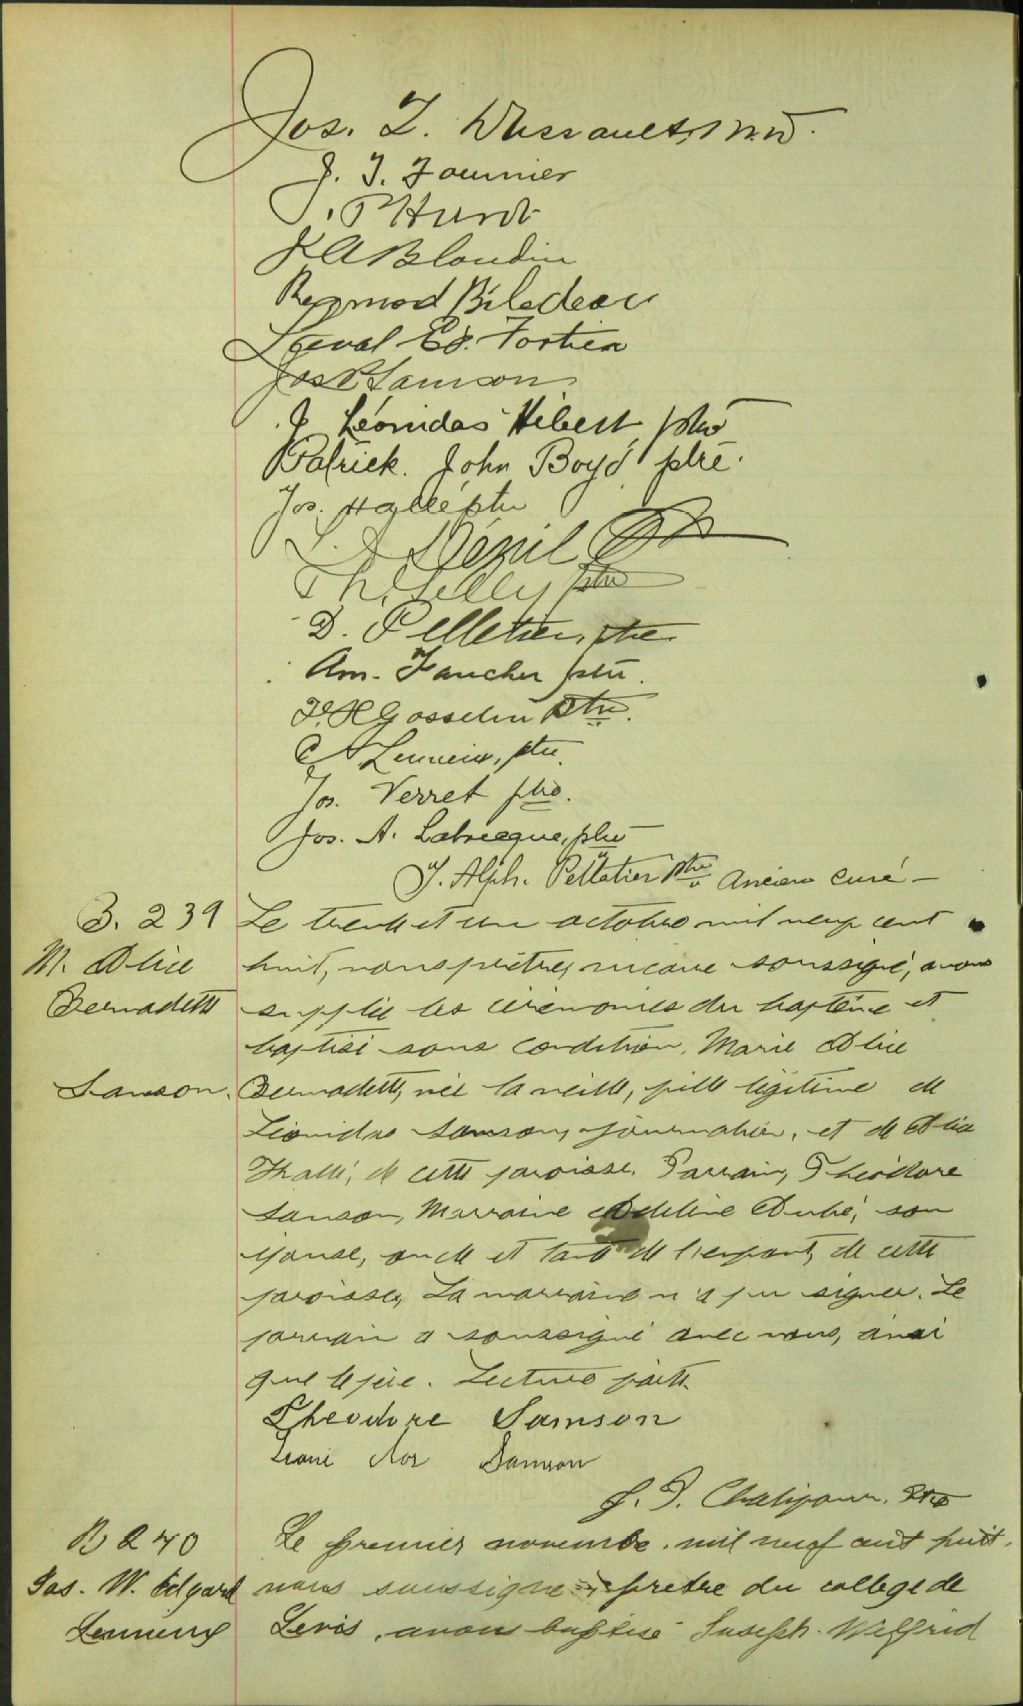 Jos. Z. Dussault, M.D.
J. T. Fournier
P Hunt
J A Blondin
Raymond Bilodeau
Laval Ed. Fortier
Jos P Samson
J Léonidas Hébert ptre
Patrick. John Boyd ptre.
Jos. Hallé ptre
L. J.
Th. ptre
D. Pelletier, ptre.
Am. Faucher ptre.
F. X Gosselin Ptre.
C A Lemieux, ptre.
Jos. Verret ptre.
Jos. A. Labrecque, ptre
J. Alph. Pelletier Ptre Ancien curé -
B. 239
M. Alice
Bernadette
Samson.
Le trente et un octobre mil neuf cent
huit, nous prêtre, vicaire soussigné, avons
supplée les cérémonies du baptême et
baptisé sous condition, Marie Alice
Bernadette, née la veille, fille légitime de
Léonidas Samson, journalier, et de Alice
de cette paroisse. Parrain, Théodore
Samson, Marraine Adeline Dubé, son
épouse, oncle et tante de l'enfant, de cette
paroisse, La marraine n'a pu signer. Le
parrain a soussigné avec nous, ainsi
que le père. Lecture faite.
Theodore Samson
Leoni das Samson
J. P. Ptre
B 240
Jos. W. Edgard
Lemieux
Le premier novembre. mil neuf cent huit,
nous soussigne prêtre du college de
Levis, avons baptisé Joseph. Wilfrid